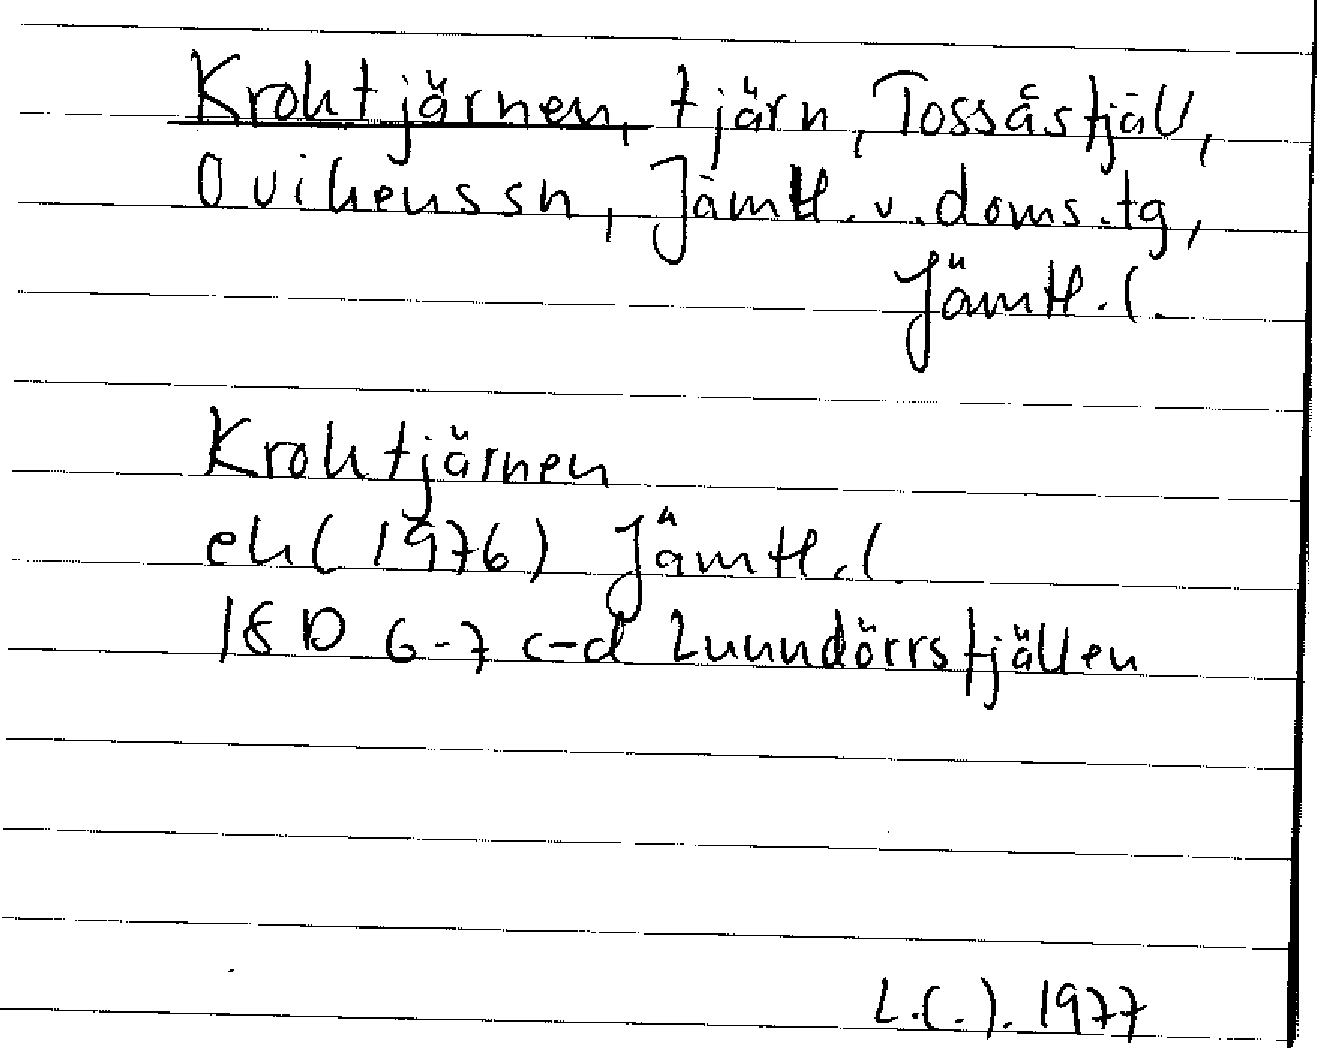 Kroktjärnen, tjärn, Tossåsfjäll,
Ovikens sn, Jämtl. v. doms. tg,
Jämtl. l.
Kroktjärnen
ek (1976) Jämtl. l.
18D 6-7 c-d Lunndörrsfjällen
1977